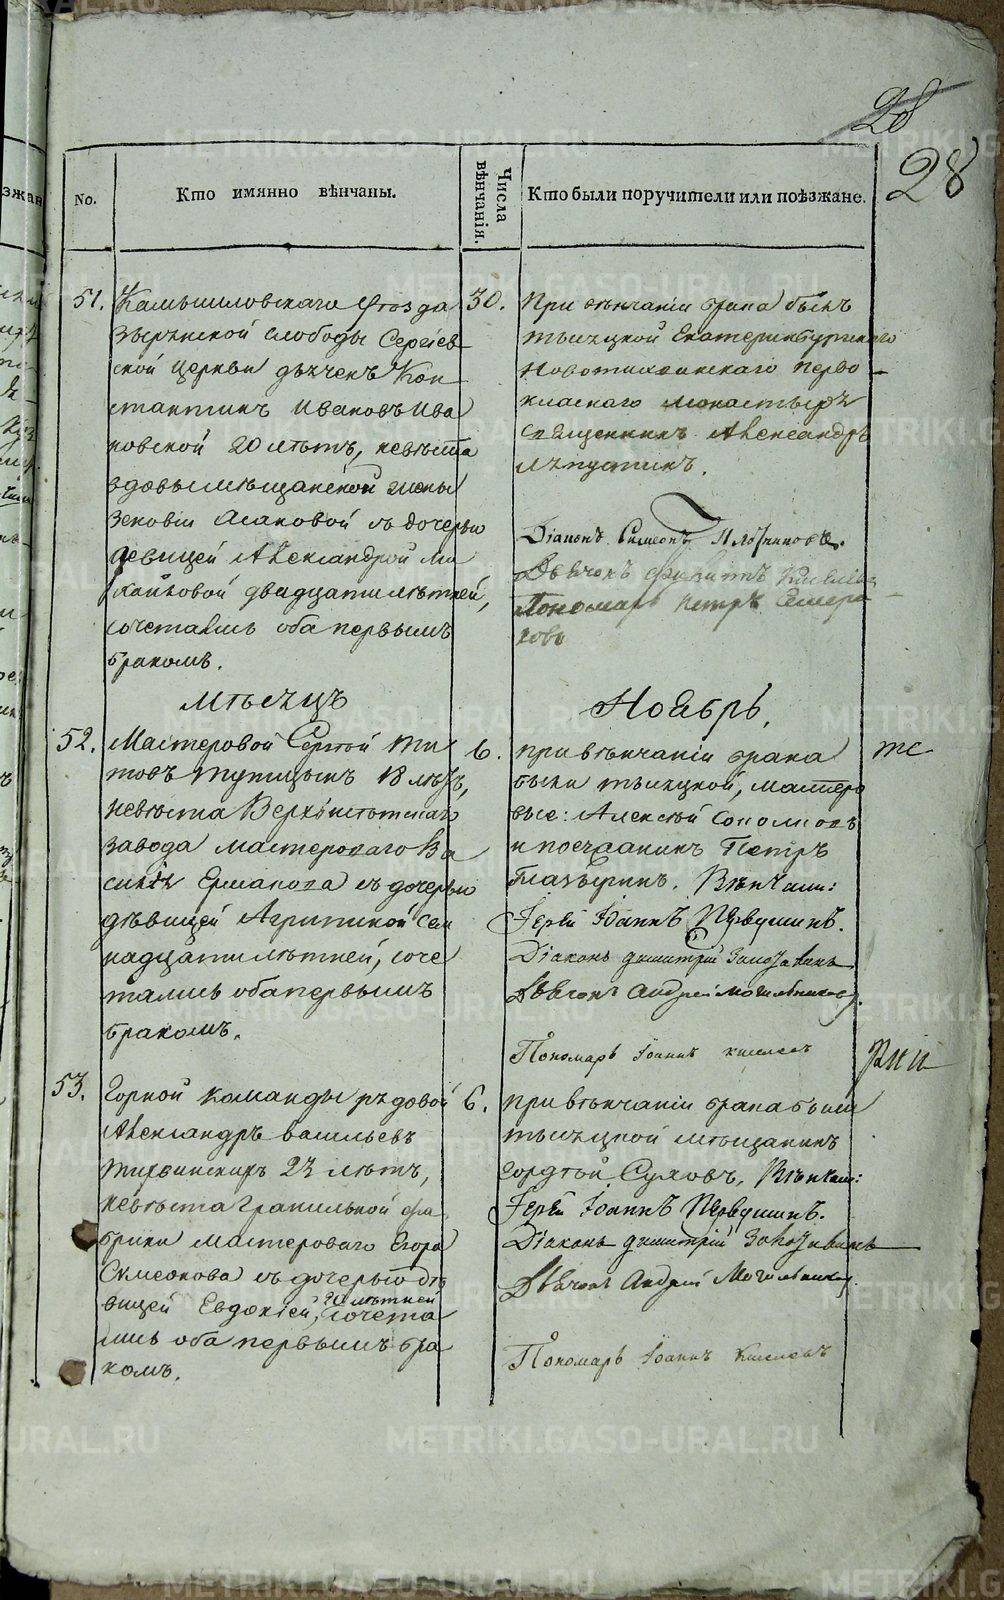 28
28
No.
Кто имянно вѣнчаны.
Числа вѣнчанія.
Кто были поручители или поѣзжане.
51.
Камышловскаго уѣзда
сской слободы Сергіев
ской церкви дьячекъ Кон
стантинъ Ивановъ Ива
новской 20 лѣтъ, невѣста
вдовы мѣщанской жены
Зеновіи Асановой съ дочерью
девицей Александрой Ми
хайловой двадцатилѣтней,
сочетались оба первымъ
бракомъ.
30.
При вѣнчаніи брака былъ
тысяцкой Екатеринбургскаго
Новотихвинскаго перво
класнаго монастыря
священникъ Александръ
Діаконъ Симеонъ Плотниковъ.
Дьячокъ Филиппъ Киселевъ
Пономарь Петръ
мѣсяцъ
Ноябрь,
52.
Мастеровой Сергѣй Ти
товъ Тупицынъ 18 лѣтъ,
невѣста Верхъисетскаго
завода мастероваго Ва
силія Ермакова съ дочерью
дѣвицей Агрипиной сем
надцатилѣтней, соче
тались оба первымъ
бракомъ.
6.
при вѣнчаніи брака
были тысяцкой, мастеро
вые: Алексѣй
и поезжанинъ Петръ
Глазыринъ. Вѣнчали:
Іерей Іоаннъ Первушинъ.
Діаконъ Димитрій
Дьячокъ Андрей Могильниковъ.
Пономарь Іоаннъ Киселевъ
53.
Горной команды рядовой
Александръ Васильевъ
23 лѣтъ,
невѣста Гранильной фа
брики мастероваго Егора
Симеонова съ дочерью дѣ
вицей Евдокіей, 20 лѣтней сочета
лись оба первымъ бра
комъ.
6.
при вѣнчаніи брака были
тысяцкой мѣщанинъ
Гордѣй Суховъ, Вѣнчали:
Іерей Іоаннъ Первушинъ.
Діаконъ Димитрій
Дьячокъ Андрей Могильниковъ.
Пономарь Іоаннъ Киселевъ
METRIKI.GASO-URAL.RU